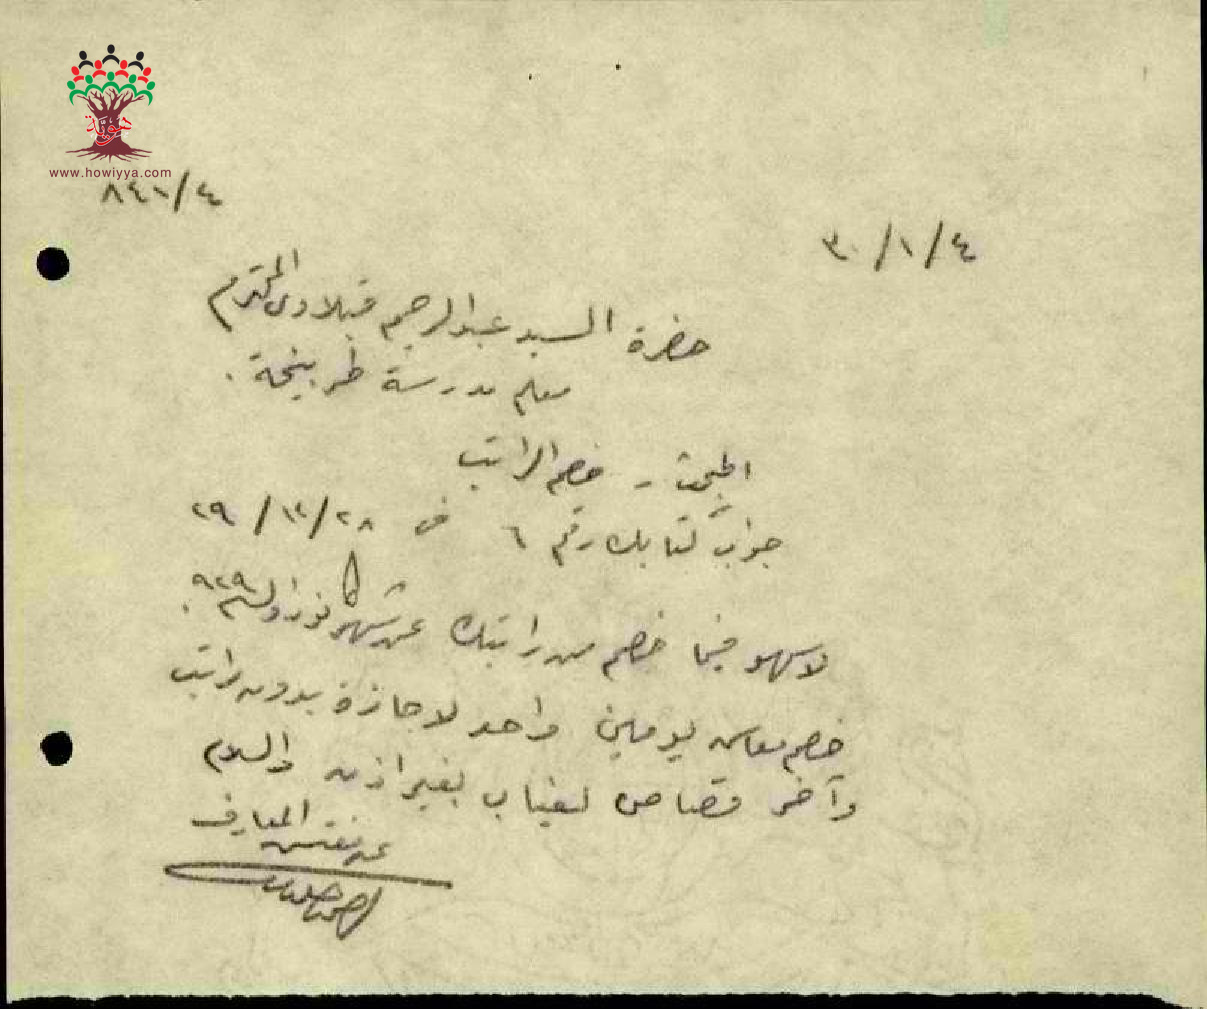 هوية
www.howiyya.com
٨٤١/٤
٣٠/١/٤
حضرة السيد عبد الرحيم قبلاوي المحترم
معلم مدرسة طربيخة.
المبحث - خصم الراتب
جواب كتابك رقم ٦ في ٢٩/١٢/٢٨
لا سهو فيما خصم من راتبك عن شهر كانون اول سنة ٩٢٩.
خصم معاش يومين واحد لاجازة بدون راتب
وآخر قصاص لغياب بغير اذن والسلام
عن مفتش المعارف